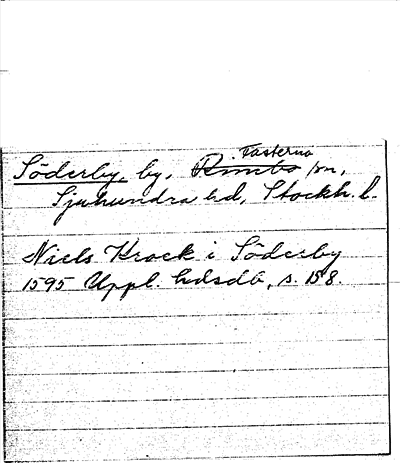 Fasterna
Söderby, by, Rimbo sn,
Sjuhundra hd, Stockh. l.
Niels Krock i Söderby
1595 Uppl. hdsdb, s. 158.